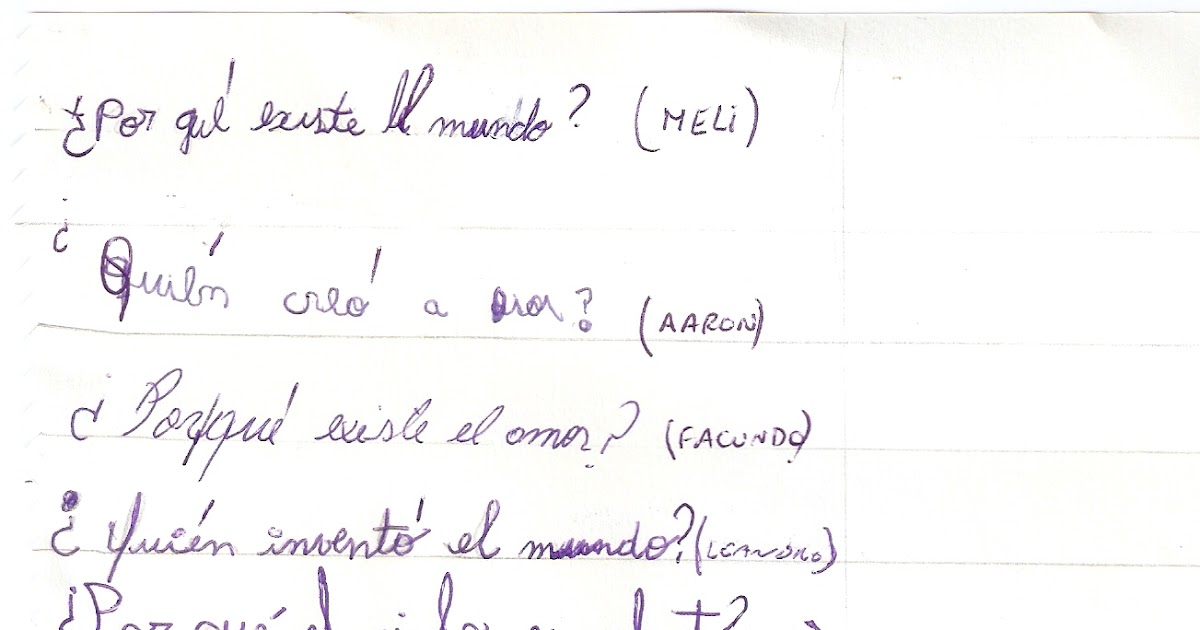 ¿Por qué existe el mundo? (MELi)
¿Quién creó a ? (AARON)
¿Por qué existe el amor? (FACUNDO)
¿Quién inventó el mundo? (LEANDRO)
¿Por qué el